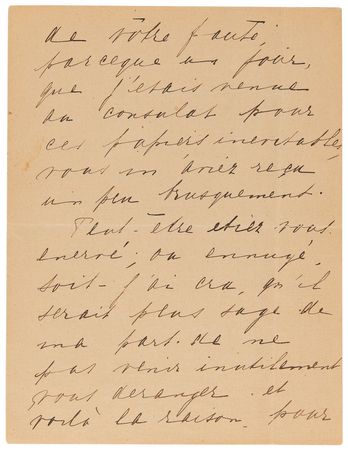 de votre faute,
parceque un jour,
que j'etais venue
au consulat pour
ces papiers inevitables,
vous m'aviez reçu
un peu brusquement.
Peut-être etiez vous
enervé, ou ennuyé,
soit - j'ai cru, qu'il
serait plus sage de
ma part de ne
pas venir inutilement
vous deranger et
voilà la raison, pour